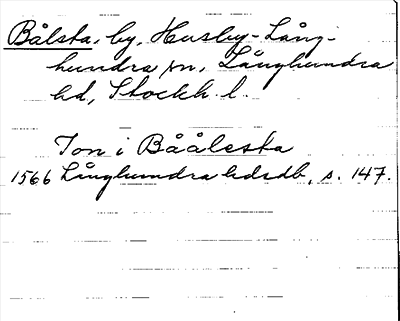 Bålsta, by, Husby-Lång-
hundra sn, Långhundra
hd, Stockh. l.
Jon i Bååletta
1566 Långhundra hdsdb, s. 147.